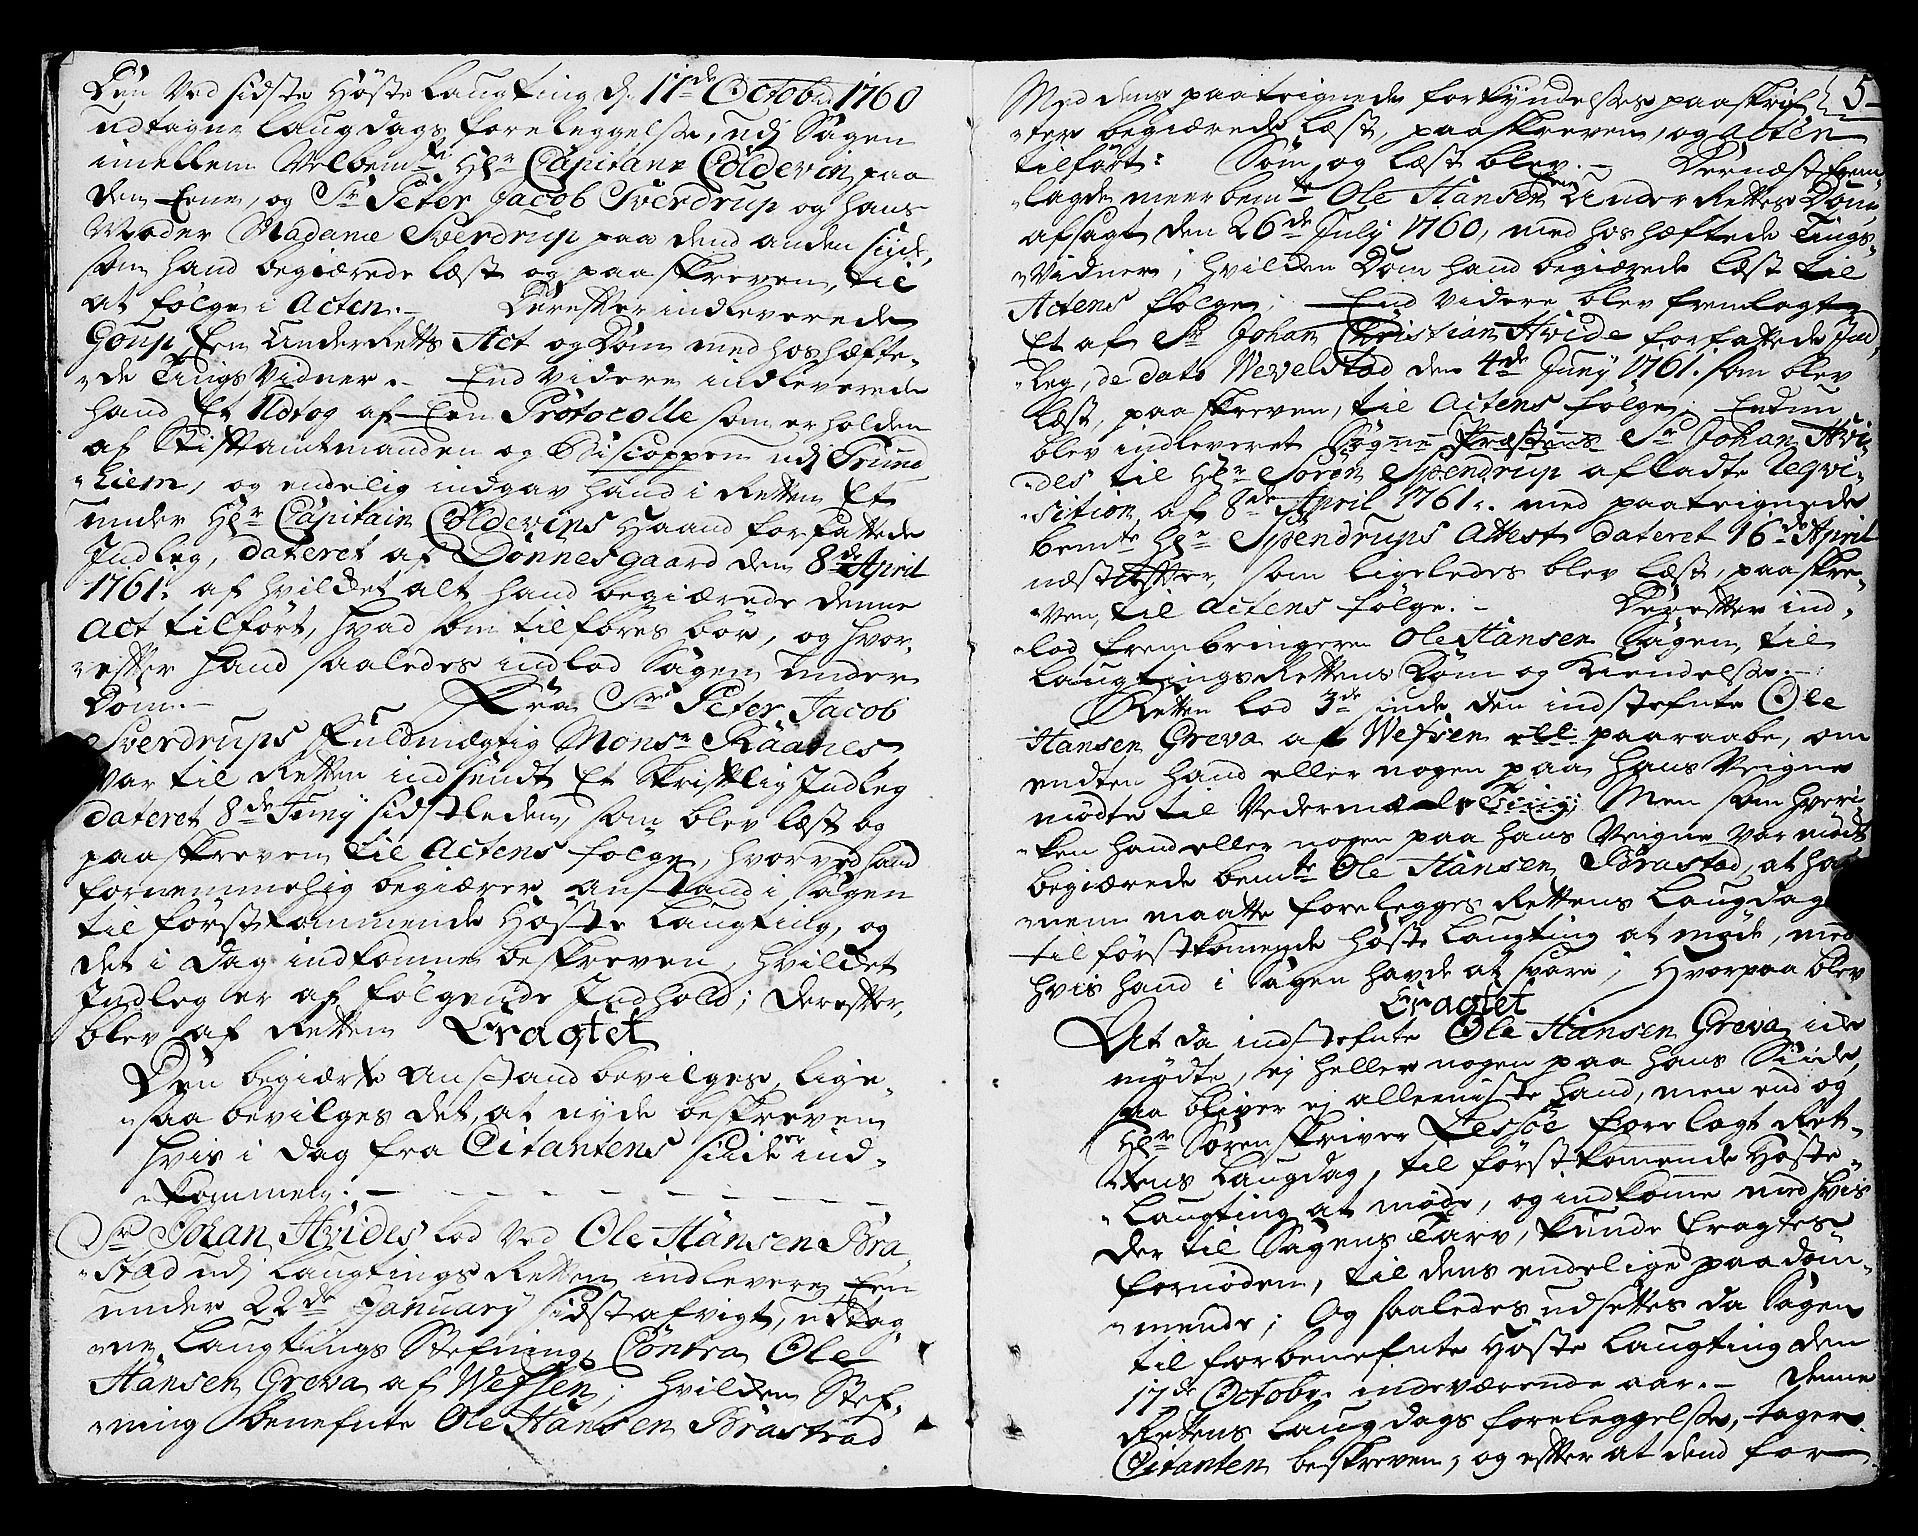 Den Ved sidste Höste Laugting d: 17de Octobr. 1760
udtagne Laugdags foreleggelse, udj Sagen
imellem Velbemte. Hr Capitain Coldevin paa
den Eene, og Sr Peter Jacob Sverdrup og hans
Moder Madame Sverdrup paa dend anden Siide,
som hand begiærede læst og paaskreven, til
at følge i Acten.- Derefter indleverede
Goup Een UnderRetts Act og Dom med hoshæfte-
-de TingsVidner.- End Videre indleverede
hand Et Udtog af Een Protocolle som er holden
af Stiftamtmanden og Biscoppen udj Trund
-hiem, og endelig indgav hand i Retten Et
under Hr Capitain Coldevins Haand forfattede
Indleg, dateret af Dönnesgaard den 8de April
1761. af hvilket alt hand begiærede denne
Act tilfört, hvad som tilføres bör, og hvor-
-efter hand saaledes indlod Sagen under
Dom.-
Fra Sr Peter Jacob
Sverdrups fuldmægtig Monsr Raanes
Var til Retten indsendt Et Skriftlig Indleg
dateret 8de Juny sidstleden, som blev læst og
paaskreven til Actens følge, hvorved hand
fornemmelig begiærer anstand i Sagen
til förstkommende Höste Laugting, og
det i Dag indkomne beskreven, hvilket
Indleg er af følgende Indhold; derefter,
blev af Retten Eragtet
Den begiærte anstand bevilges, lige-
-saa bevilges det, at nyde beskreven
hvis i Dag fra Citantens Siide er ind-
-kommen.-
Sr Johan Hvides lod Ved Ole Hansen Bra
-stad udj LaugtingsRetten indlevere, Een
under 22de January sidstafvigt, udtag
-ne Laugtings Stefning, Contra Ole
Hansen Greva af Wefsen; hvilken Stef-
-ning benefnte Ole Hansen Brastad
5
Med dens paateignede forkyndelses paaskrif-
-ter begiærede læst, paaskreven, og acten
tilført: Som og læst blev.- Dernæst frem-
-lagde meerbemte Ole Hansen Een UnderRettes Dom
afsagt den 26de July 1760, med hoshæftede Tings-
-Vidner; hvilken Dom hand begiærede læst til
Actens følge; End Videre blev fremlagt
Et af Sr Johan Christian Hvide forfattede Ind-
-leg, de dato Wevelstad den 4de Juny 1761. som blev
læst, paaskreven, til Actens følge; Endnu
blev indleveret Sogne Præstens Sr Johan Hvi-
-des til Hr Soren Spendrup afladte Reqvi-
-sition af 8de April 1761. med paateignede
bemte Hr Spendrups Attest dateret 16de April
næstefter, som ligeledes blev læst, paaskre-
-ven, til Actens følge.- Derefter ind-
-lod frembringeren Ole Hansen Sagen, til
LaugtingsRettens Dom og Kiendelse.-
Retten lod 3de sinde den indstefnte Ole
Hansen Greva af Wefsen paaraabe, om
endten hand eller nogen paa hans Veigne
mødte til Vedermæle Ting; Men som hver-
-ken hand eller nogen paa hans Veigne Var mødt
begiærede bemte Ole Hansen Brastad, at ha
-nem maatte forelegges Rettens Laugdag
til förstkomende Höste Laugting at møde, med
hvis hand i Sagen havde at Svare; Hvorpaa blev
Eragtet
At da indstefnte Ole Hansen Greva icke
mødte, ej heller nogen paa hans Siide,
saa bliver ej alleeniste hand, men end og
Hr Sorenskriver Lessöe forelagt Ret-
-tens Laugdag, til förstkomende Höste-
-Laugting at møde, og indkome med hvis
der til Sagens Tarv, kunde Eragtes
fornøden, til dens endelige paadöm-
-mende; Og saaledes udsettes da Sagen
til forbenefnte Höste Laugting den
17de Octobr. indeværende aar.- Denne
Rettens Laugdags foreleggelse, tager
Citanten beskreven, og efter at dend for